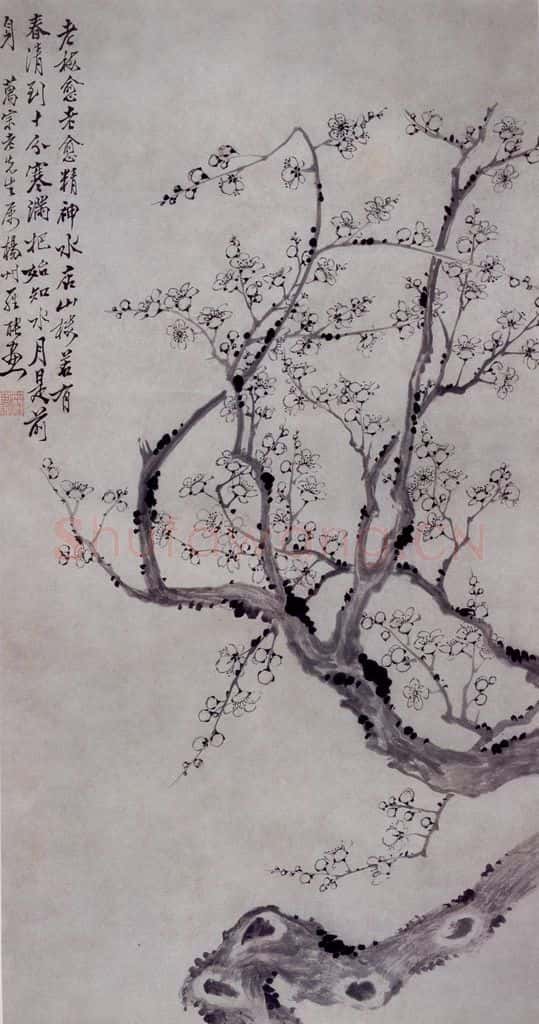 老梅愈老愈精神水店山樓若有
春清到十分寒滿把始知水月是前
身 萬宗老先生属揚州羅聘画
Shufawang.CN